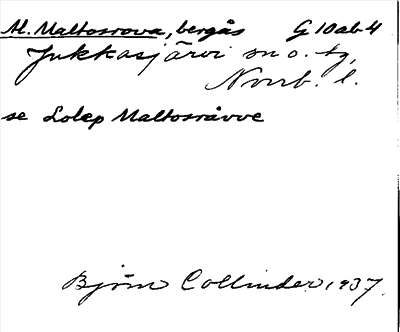 M. Maltosrova, bergås G 10ab4
Jukkasjärvi sn o. tg,
Norrb. l.
se Lolep Maltosråvve
Björn Collinder 1937.